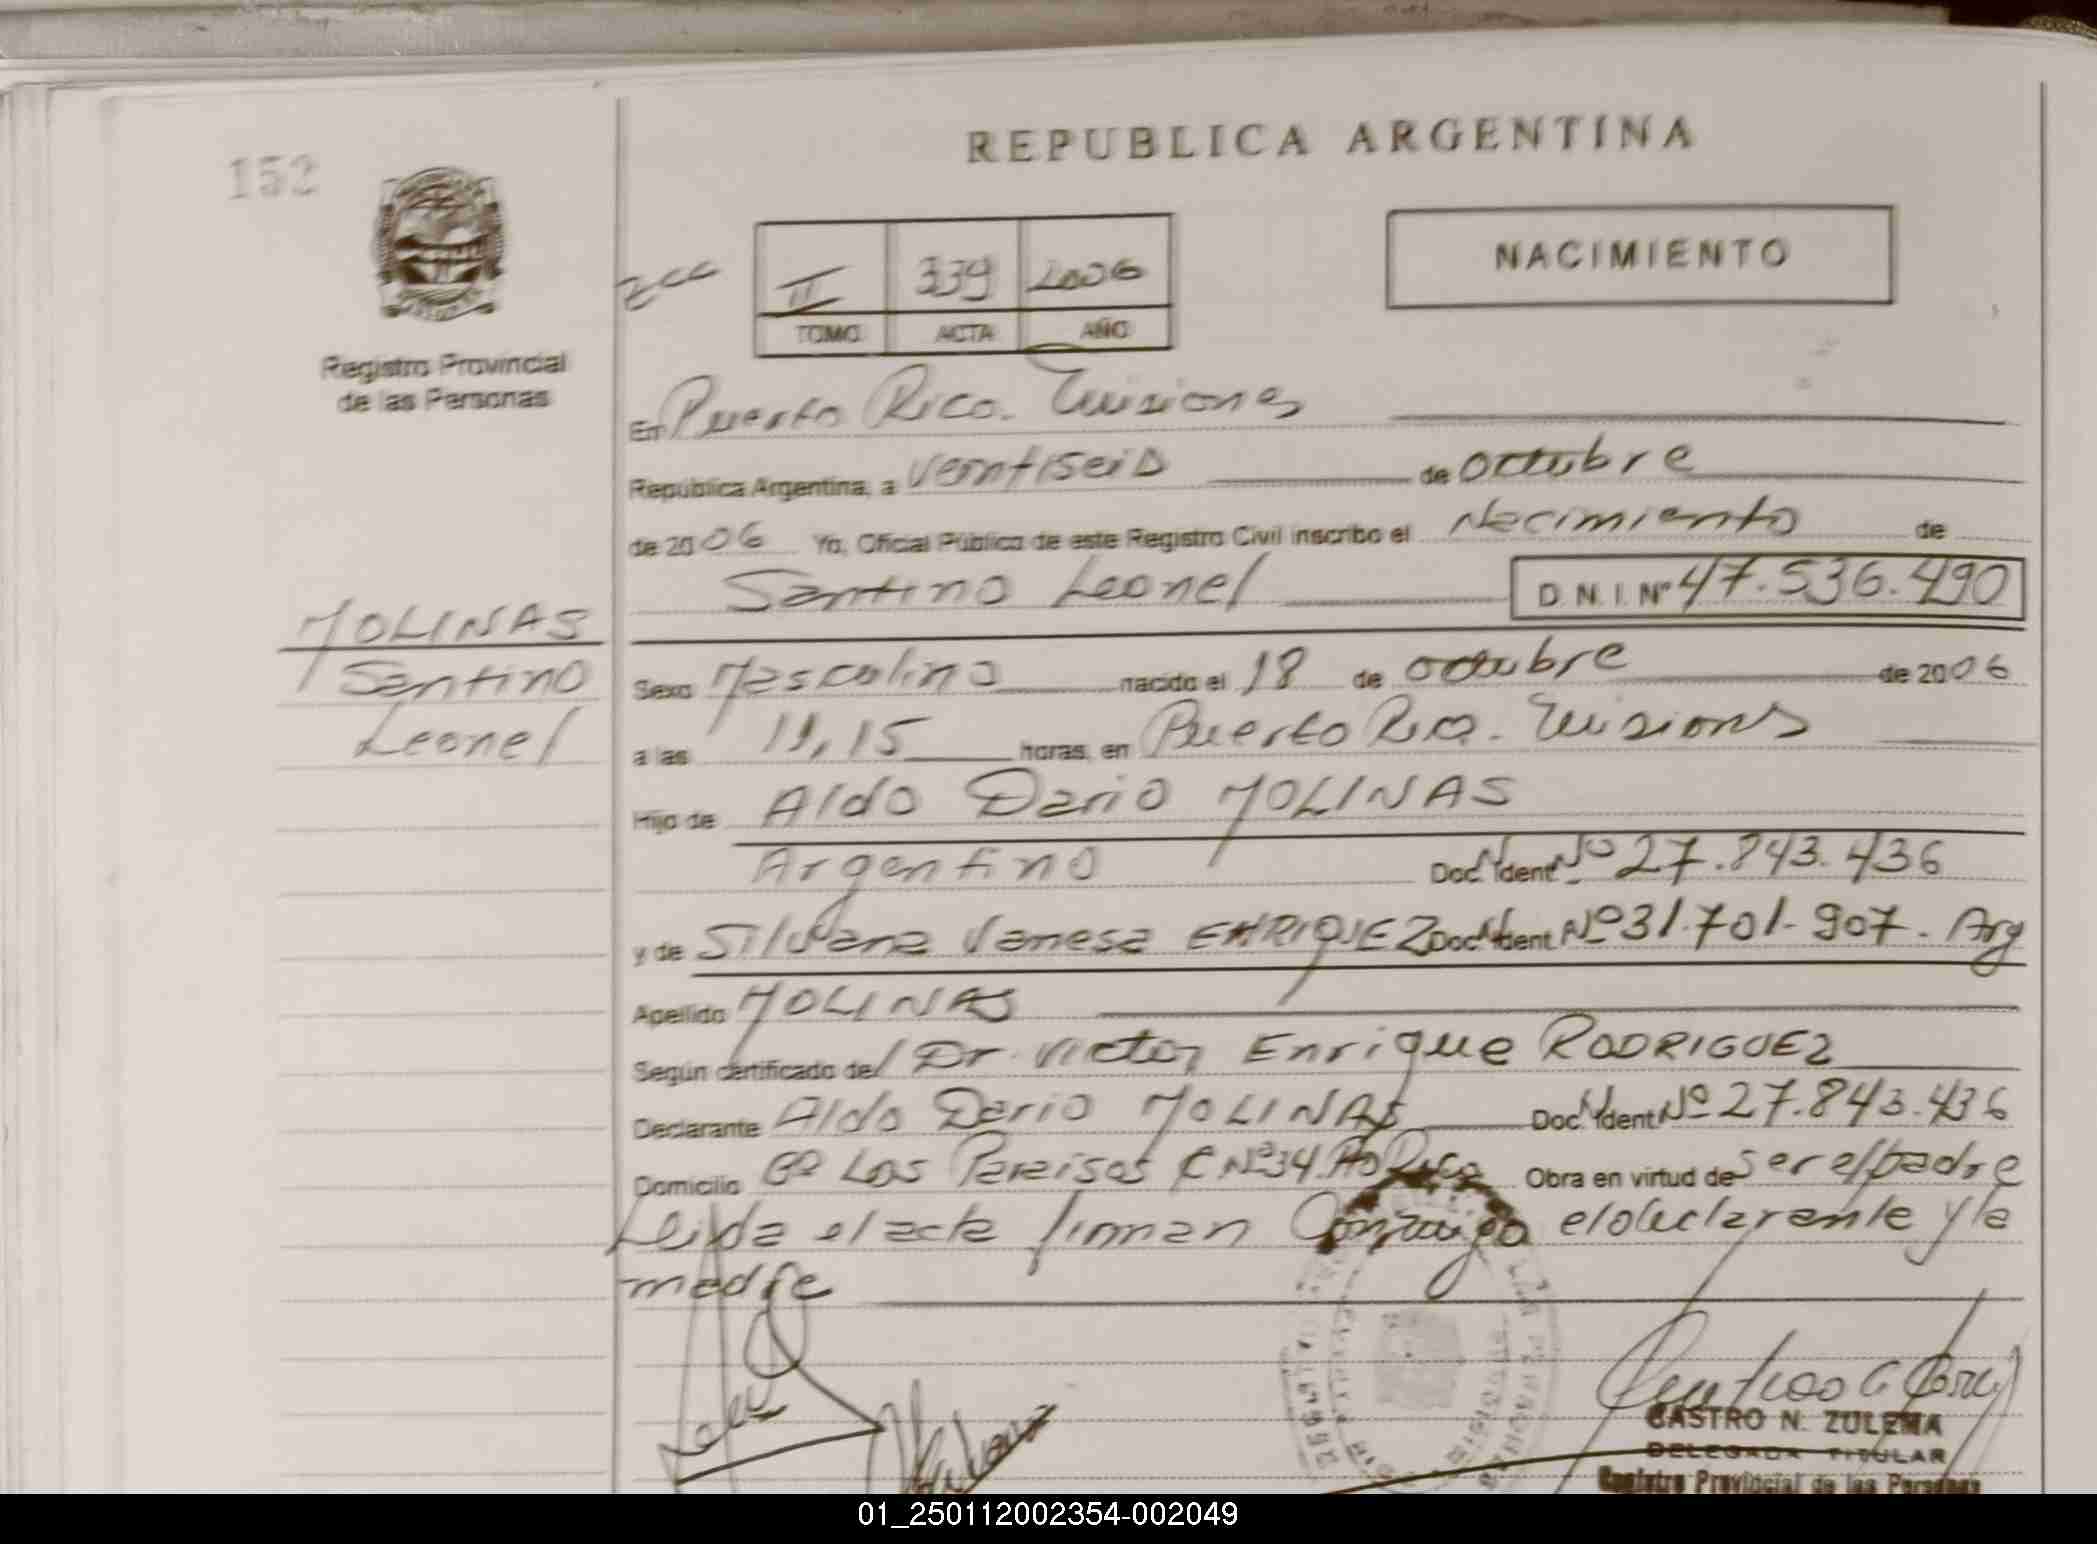 REPUBLICA ARGENTINA
152
NACIMIENTO
II 339 2006
TOMO ACTA AÑO
Registro Provincial
de las Personas
En Puerto Rico. Misiones
República Argentina, a veintiseis de octubre
de 2006 Yo, Oficial Público de este Registro Civil inscribo el Nacimiento de
Santino Leonel D.N.I. Nº 47.536.490
MOLINAS
Santino
Leonel
Sexo Masculino nacido el 18 de octubre de 2006
a las 11,15 horas, en Puerto Rico. Misiones
Hijo de Aldo Dario MOLINAS
Argentino Doc. Ident. Nº 27.843.436
y de Silvana Vanesa ENRIQUEZ Doc. Ident. Nº 31.701.907. Arg
Apellido MOLINAS
Según certificado del Dr. Victor Enrique RODRIGUEZ
Declarante Aldo Dario MOLINAS Doc. Ident. Nº 27.843.436
Domicilio Bº Los Paraisos C Nº 34 Pto Rico Obra en virtud de ser el padre
Leida el acta firman Conmigo el declarante y la
madre
CASTRO N. ZULEMA
DELEGADA TITULAR
Registro Provincial de las Personas
01_250112002354-002049